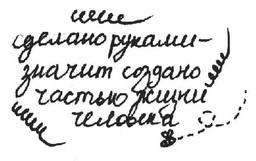 сделано руками –
значит создано
частью жизни
человека